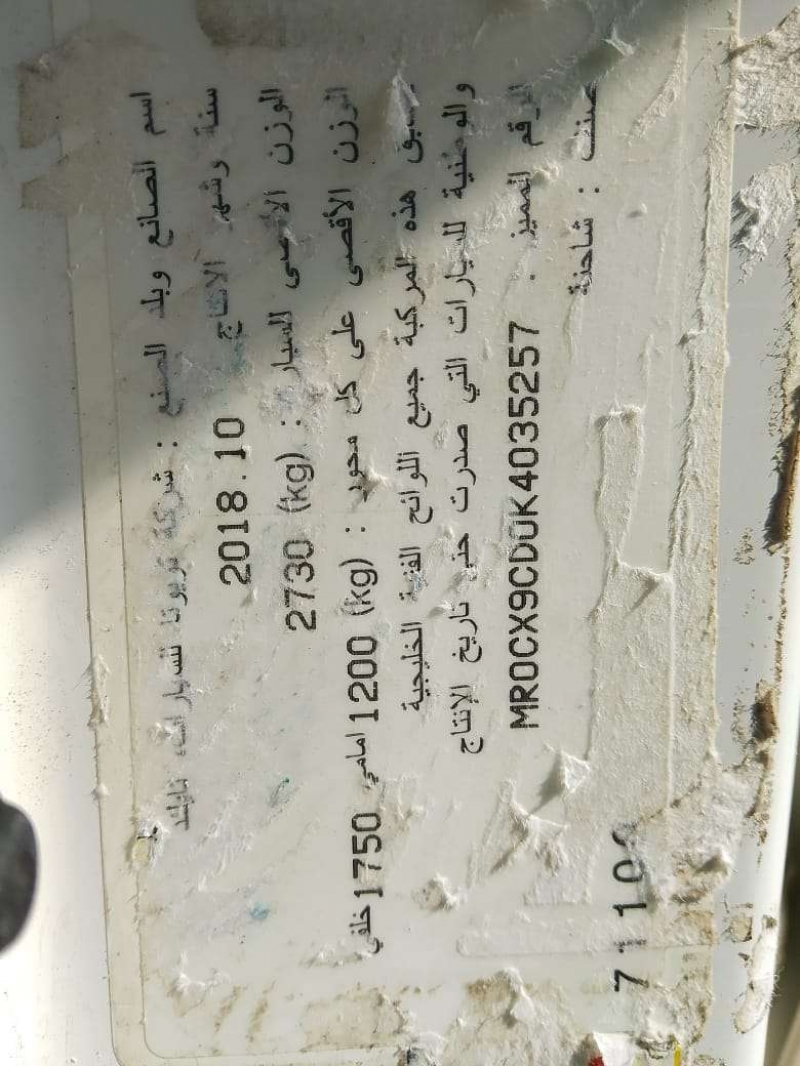 اسم الصانع وبلد الصنع : شركة تويوتا للسيارات، تايلند
سنة وشهر الانتاج 2018.10
الوزن الأقصى للسيارة : (kg) 2730
الوزن الأقصى على كل محور : (kg) 1200 امامي 1750 خلفي
هذه المركبة جميع اللوائح الفنية الخليجية
والوطنية للسيارات التي صدرت حتى تاريخ الإنتاج
الرقم المميز : MR0CX9CD0K4035257
صنف : شاحنة